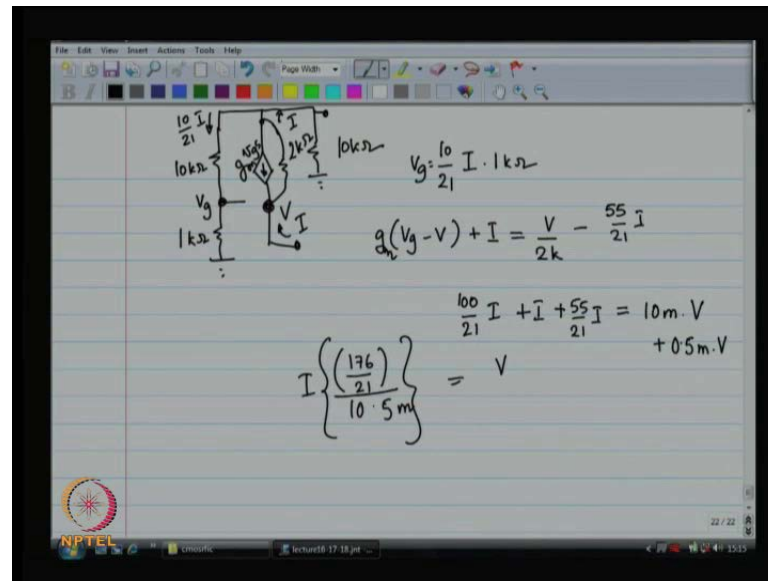 File Edit View Insert Actions Tools Help
Page Width
10/21 I
I
10kΩ
gm vgs
2kΩ
10kΩ
Vg = 10/21 I · 1kΩ
Vg
V
I
1kΩ
gm(Vg - V) + I = V/2k - 55/21 I
100/21 I + I + 55/21 I = 10m·V
+ 0.5m·V
I { (176/21) / 10·5m } = V
22 / 22
NPTEL
cmosrfic
lecture16-17-18.jnt
15:15